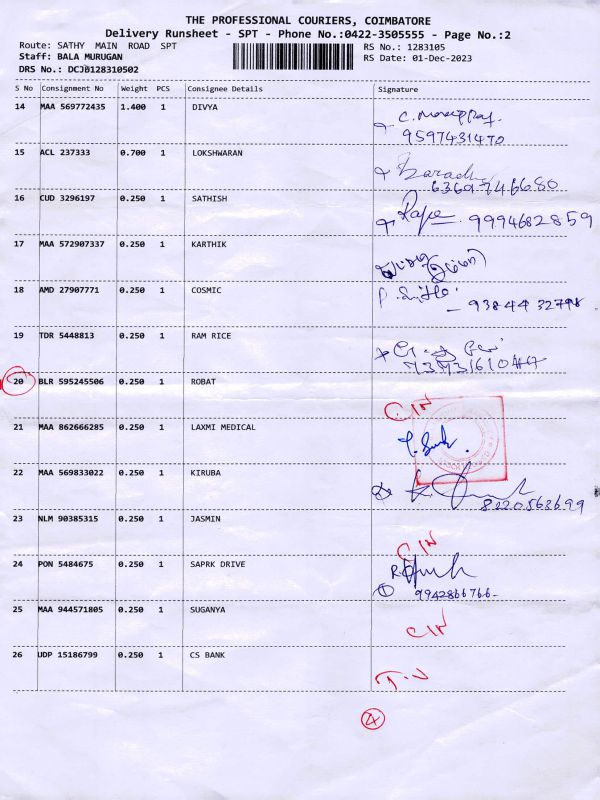 THE PROFESSIONAL COURIERS, COIMBATORE
Delivery Runsheet - SPT - Phone No.:0422-3505555 - Page No.:2
Route: SATHY MAIN ROAD SPT
RS No.: 1283105
Staff: BALA MURUGAN
RS Date: 01-Dec-2023
DRS No.: DCJB128310502
S No Consignment No Weight PCS Consignee Details Signature
14 MAA 569772435 1.400 1 DIVYA
9597431470
15 ACL 237333 0.700 1 LOKSHWARAN
6369746680
16 CUD 3296197 0.250 1 SATHISH
9994682859
17 MAA 572907337 0.250 1 KARTHIK
18 AMD 27907771 0.250 1 COSMIC
9384432798
19 TDR 5448813 0.250 1 RAM RICE
20 BLR 595245506 0.250 1 ROBAT
CIN
21 MAA 862666285 0.250 1 LAXMI MEDICAL
22 MAA 569833022 0.250 1 KIRUBA
8220568699
23 NLM 90385315 0.250 1 JASMIN
CIN
24 PON 5484675 0.250 1 SAPRK DRIVE
9942866766
25 MAA 944571805 0.250 1 SUGANYA
CIN
26 UDP 15186799 0.250 1 CS BANK